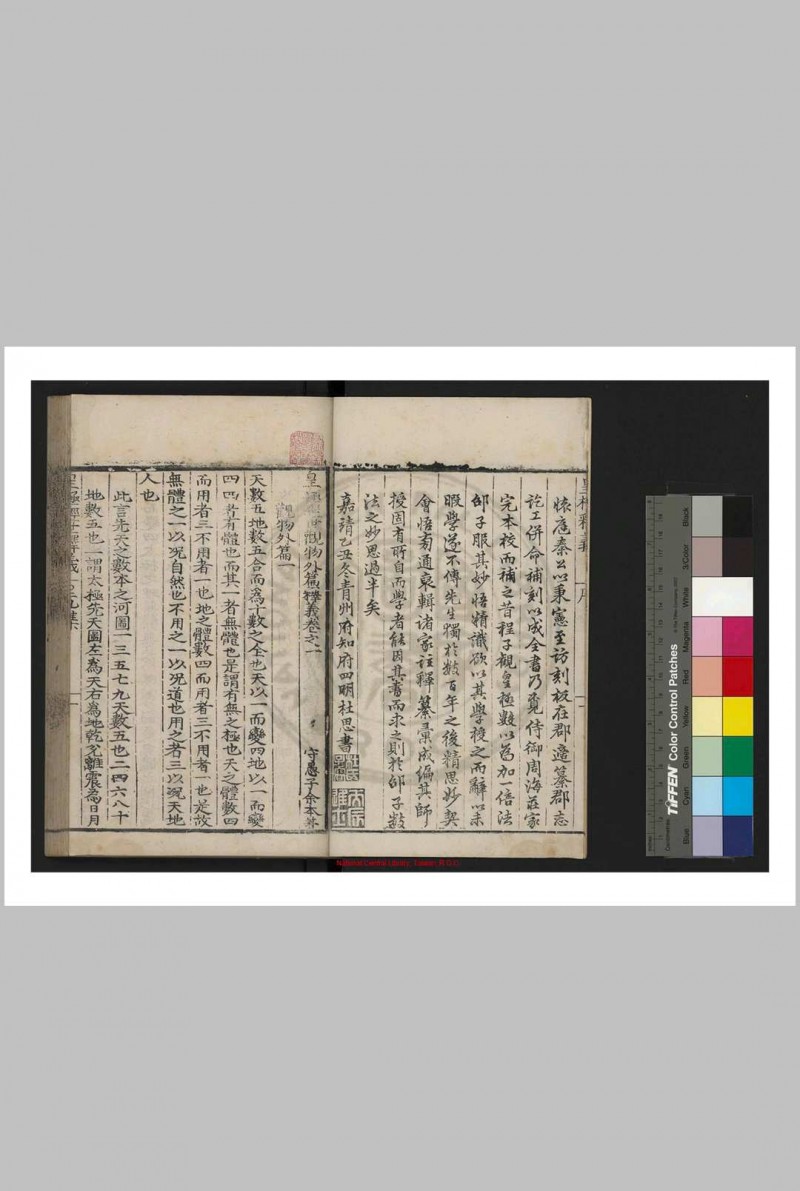 懷應秦公以秉憲至訪刻板在郡適纂郡志
訖工併命補刻以成全書乃覓侍御周海莊家
完本校而補之昔程子觀皇極數以為加一倍法
邵子服其妙悟精識欲以其學授之而辭以未
暇學遂不傳先生獨於數百年之後精思妙契
會悟旁通裒輯諸家註釋纂彙成編其師
授固有所自而學者能因其書而求之則於邵子數
法之妙思過半矣
嘉靖乙丑冬青州府知府四明杜思書
皇極經世觀物外篇釋義卷之一
守愚子余本
觀物外篇一
天數五地數五合而為十數之全也天以一而變四地以一而變
四四者有體也而其一者無體也是謂有無之極也天之體數四
而用者三不用者一也地之體數四而用者三不用者一也是故
無體之一以況自然也不用之一以況道也用之者三以況天地
人也
此言先天之數本之河圖一三五七九天數五也二四六八十
地數五也一謂太極先天圖左為天右為地乾兌離震為日月
National Central Library, Taiwan, R.O.C
TIFFEN Color Control Patches
Blue Cyan Green Yellow Red Magenta White 3/Color Black